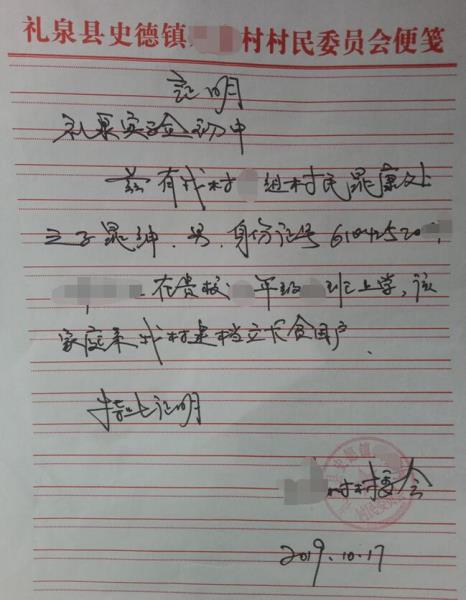 礼泉县史德镇 村村民委员会便笺
证明
礼泉实验初中
兹有我村 组村民晁
之子晁 ,男,身份证号61042520
在贵校 年级 班上学,该
家庭系我村建档立卡贫困户.
特此证明
村村委会
2019.10.17